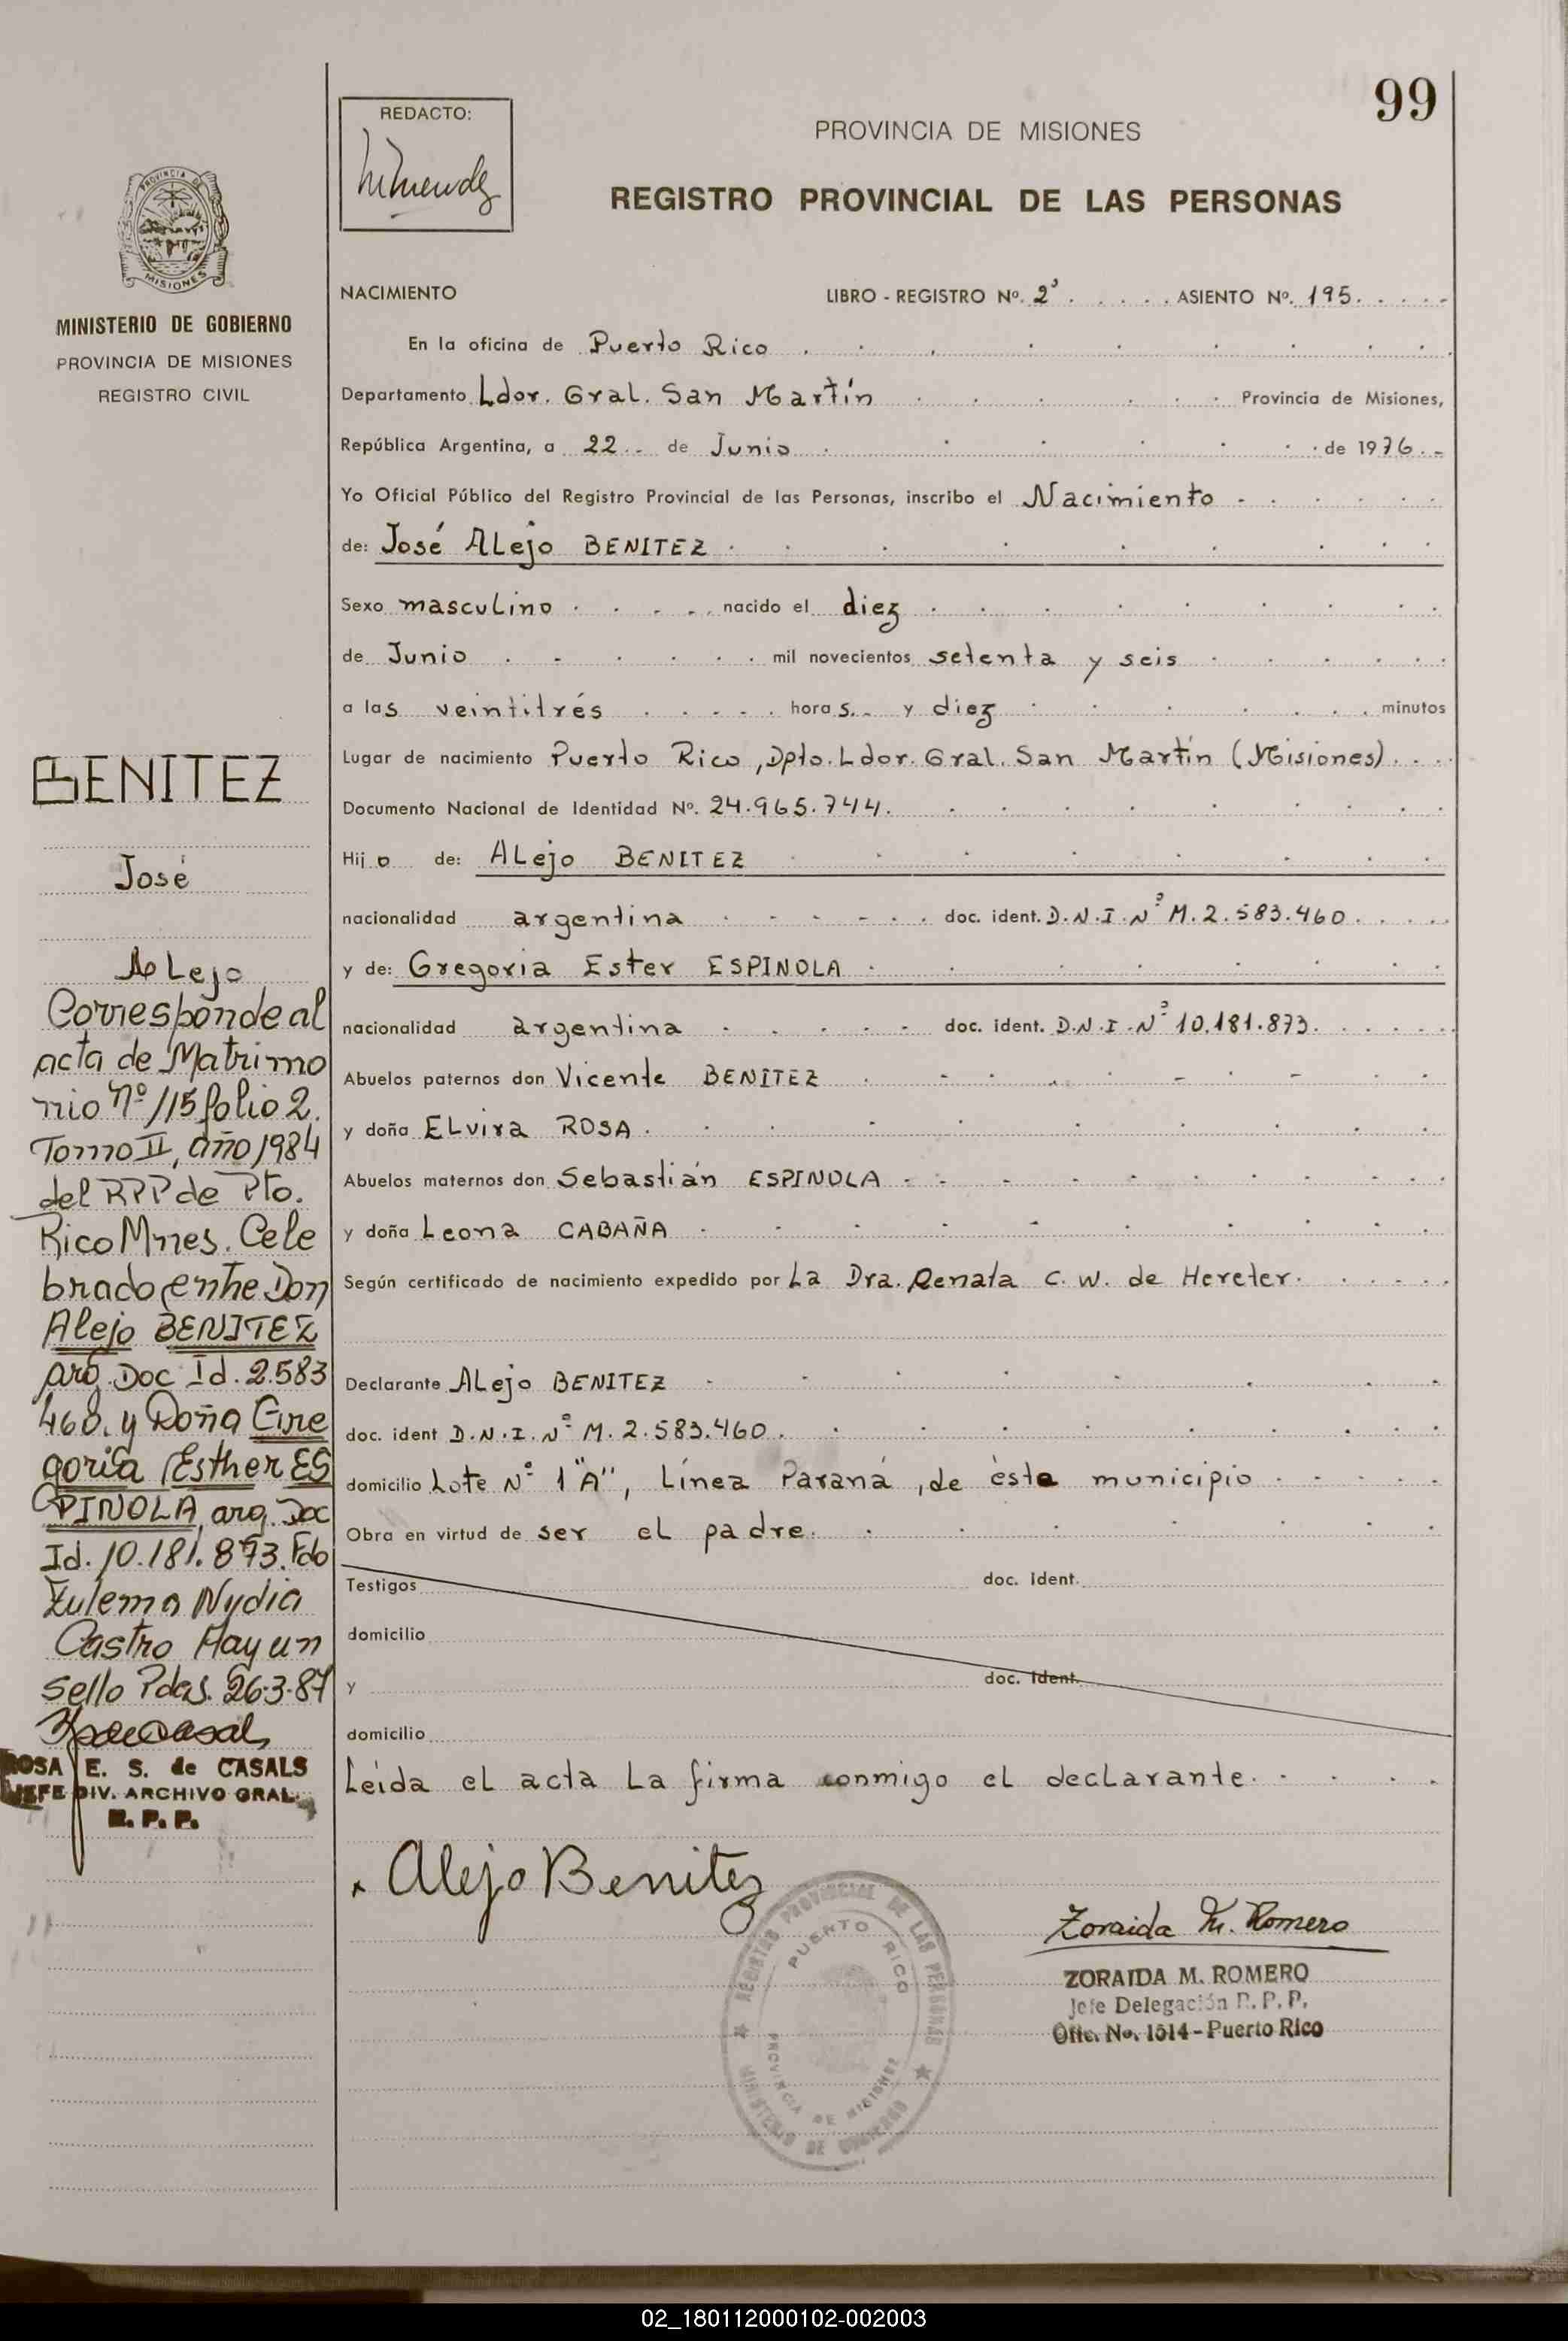 99
REDACTO:
PROVINCIA DE MISIONES
REGISTRO PROVINCIAL DE LAS PERSONAS
PROVINCIA DE
MISIONES
MINISTERIO DE GOBIERNO
PROVINCIA DE MISIONES
REGISTRO CIVIL
NACIMIENTO LIBRO - REGISTRO Nº. 2º ASIENTO Nº. 195.
En la oficina de Puerto Rico
Departamento Ldor. Gral. San Martín Provincia de Misiones,
República Argentina, a 22 de Junio de 1976.-
Yo Oficial Público del Registro Provincial de las Personas, inscribo el Nacimiento
de: José Alejo BENITEZ
Sexo masculino nacido el diez
de Junio mil novecientos setenta y seis
a las veintitrés horas y diez minutos
Lugar de nacimiento Puerto Rico, Dpto. Ldor. Gral. San Martín (Misiones).
Documento Nacional de Identidad Nº. 24.965.744.
Hijo de: Alejo BENITEZ
nacionalidad argentina doc. ident. D.N.I. Nº M. 2.583.460.
y de: Gregoria Ester ESPINOLA
nacionalidad argentina doc. ident. D.N.I. Nº 10.181.873.
Abuelos paternos don Vicente BENITEZ
y doña Elvira ROSA.
Abuelos maternos don Sebastián ESPINOLA
y doña Leona CABAÑA
Según certificado de nacimiento expedido por La Dra. Renata C. W. de Hereter.
Declarante Alejo BENITEZ
doc. ident D.N.I. Nº M. 2.583.460.
domicilio Lote Nº 1 "A", Línea Paraná, de éste municipio
Obra en virtud de ser el padre.
Testigos doc. ident.
domicilio
y doc. ident.
domicilio
Leída el acta la firma conmigo el declarante.
Alejo Benitez
Zoraida M. Romero
ZORAIDA M. ROMERO
Jefe Delegación R. P. P.
Ofic. No. 1514 - Puerto Rico
REGISTRO PROVINCIAL DE LAS PERSONAS
PUERTO RICO
PROVINCIA DE MISIONES
MINISTERIO DE GOBIERNO
BENITEZ
José
Alejo
Corresponde al
acta de Matrimo
nio Nº 115 folio 2.
Tomo II, año 1984
del RPP de Pto.
Rico Mnes. Cele
brado entre Don
Alejo BENITEZ
arg. Doc Id. 2.583
460. y Doña Gre
goria Esther ES
PINOLA, arg. Doc
Id. 10.181.873. Fdo
Zulema Nydia
Castro Hayun
sello Pdas. 26-3-87
ROSA E. S. de CASALS
JEFE DIV. ARCHIVO GRAL.
R. P. P.
02_180112000102-002003